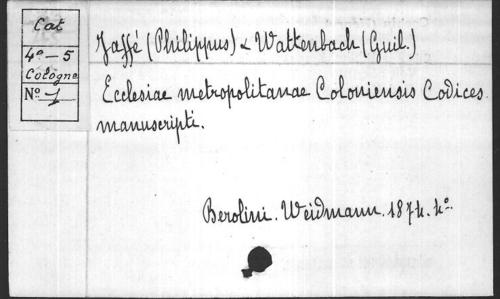 Cat
4º — 5
Cologne
Nº 1
Jaffé (Philippus) & Wattenbach (Guil.)
Ecclesiae metropolitanae Coloniensis Codices
manuscripti.
Berolini. Weidmann. 1874. 4º.